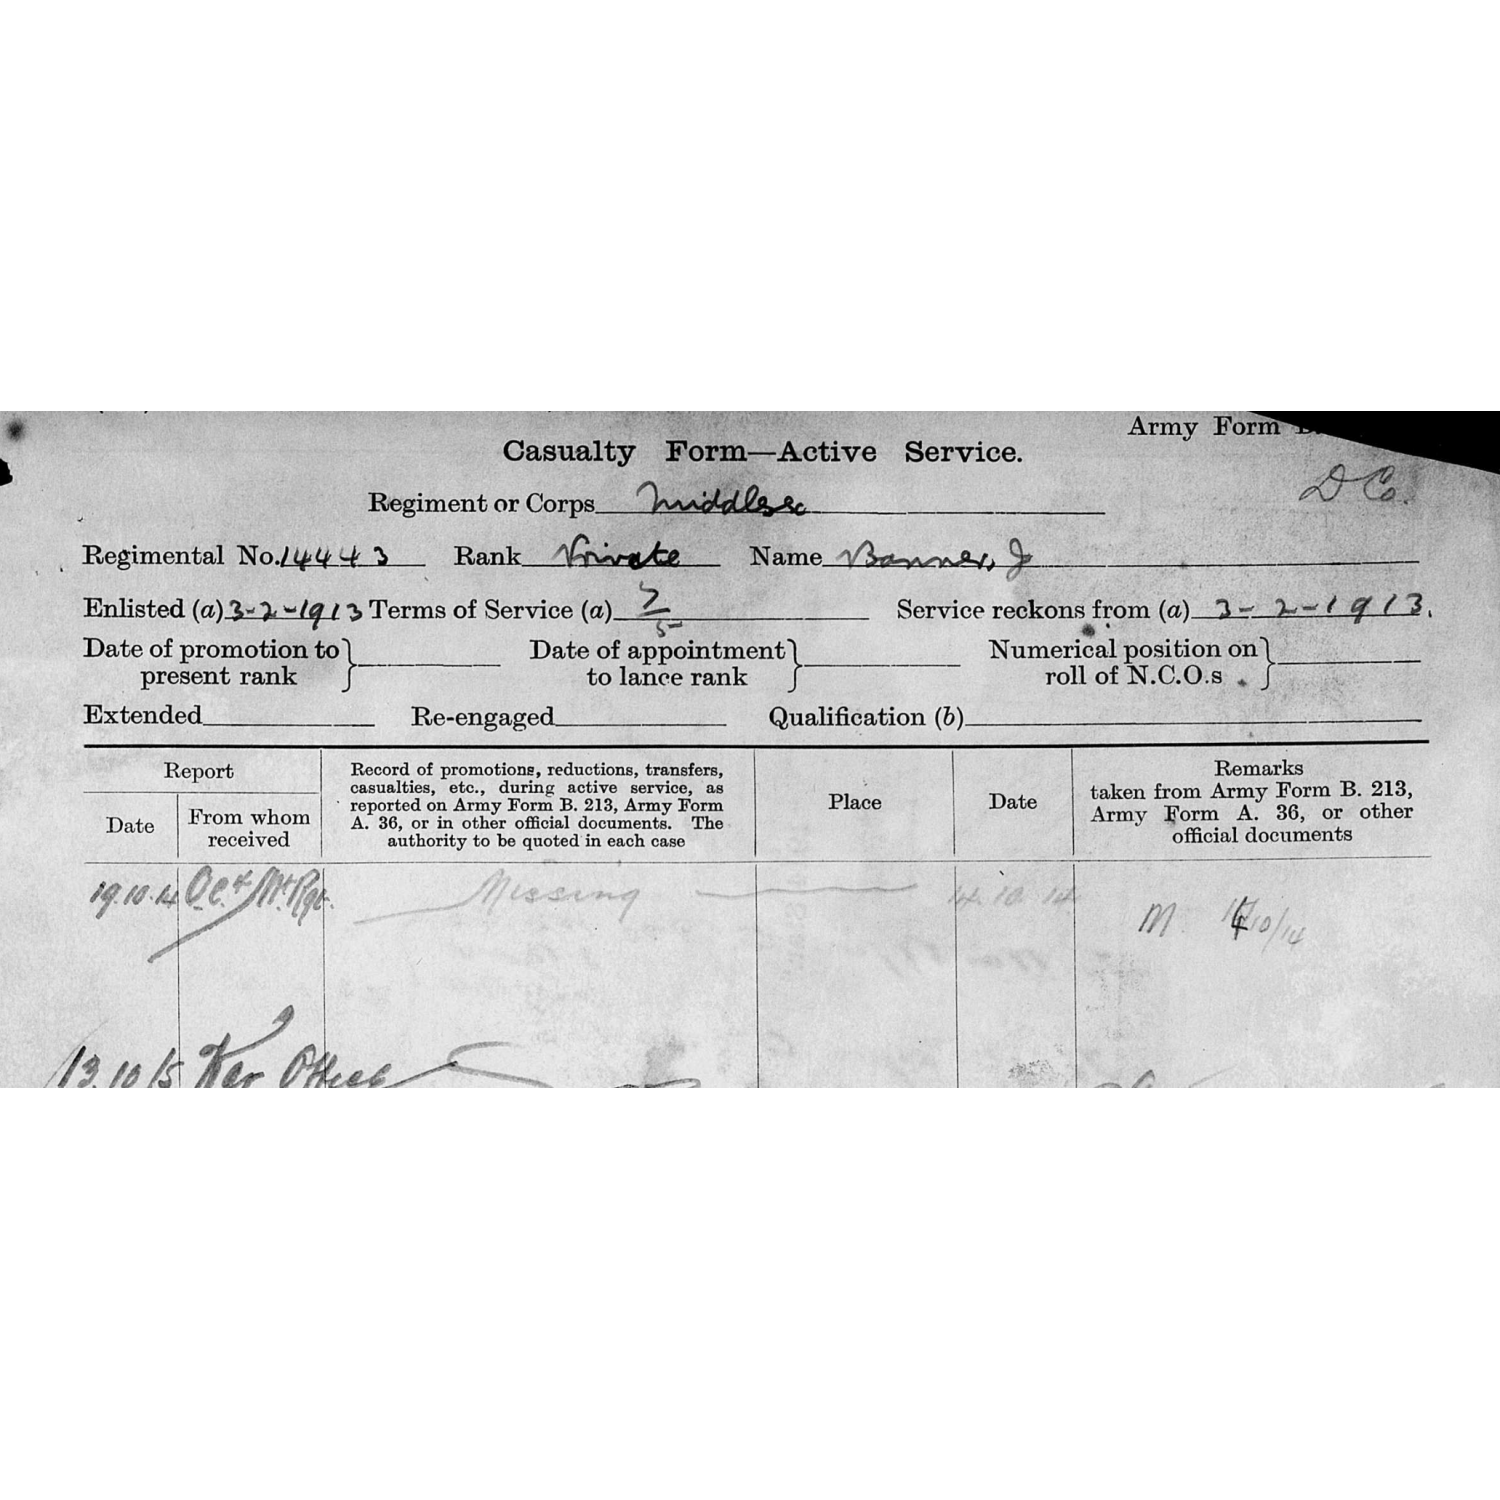 Army Form
Casualty Form—Active Service.
D Co.
Regiment or Corps Middlesex
Regimental No. 14443 Rank Private Name Banner, J
Enlisted (a) 3-2-1913 Terms of Service (a) 7/5 Service reckons from (a) 3-2-1913.
Date of promotion to present rank } Date of appointment to lance rank } Numerical position on roll of N.C.O.s }
Extended Re-engaged Qualification (b)
Report
Date
From whom received
Record of promotions, reductions, transfers,
casualties, etc., during active service, as
reported on Army Form B. 213, Army Form
A. 36, or in other official documents. The
authority to be quoted in each case
Place
Date
Remarks
taken from Army Form B. 213,
Army Form A. 36, or other
official documents
19.10.14 O.C. 4 Mx Rgt. Missing 14.10.14
M 14/10/14
13.10.15 War Office